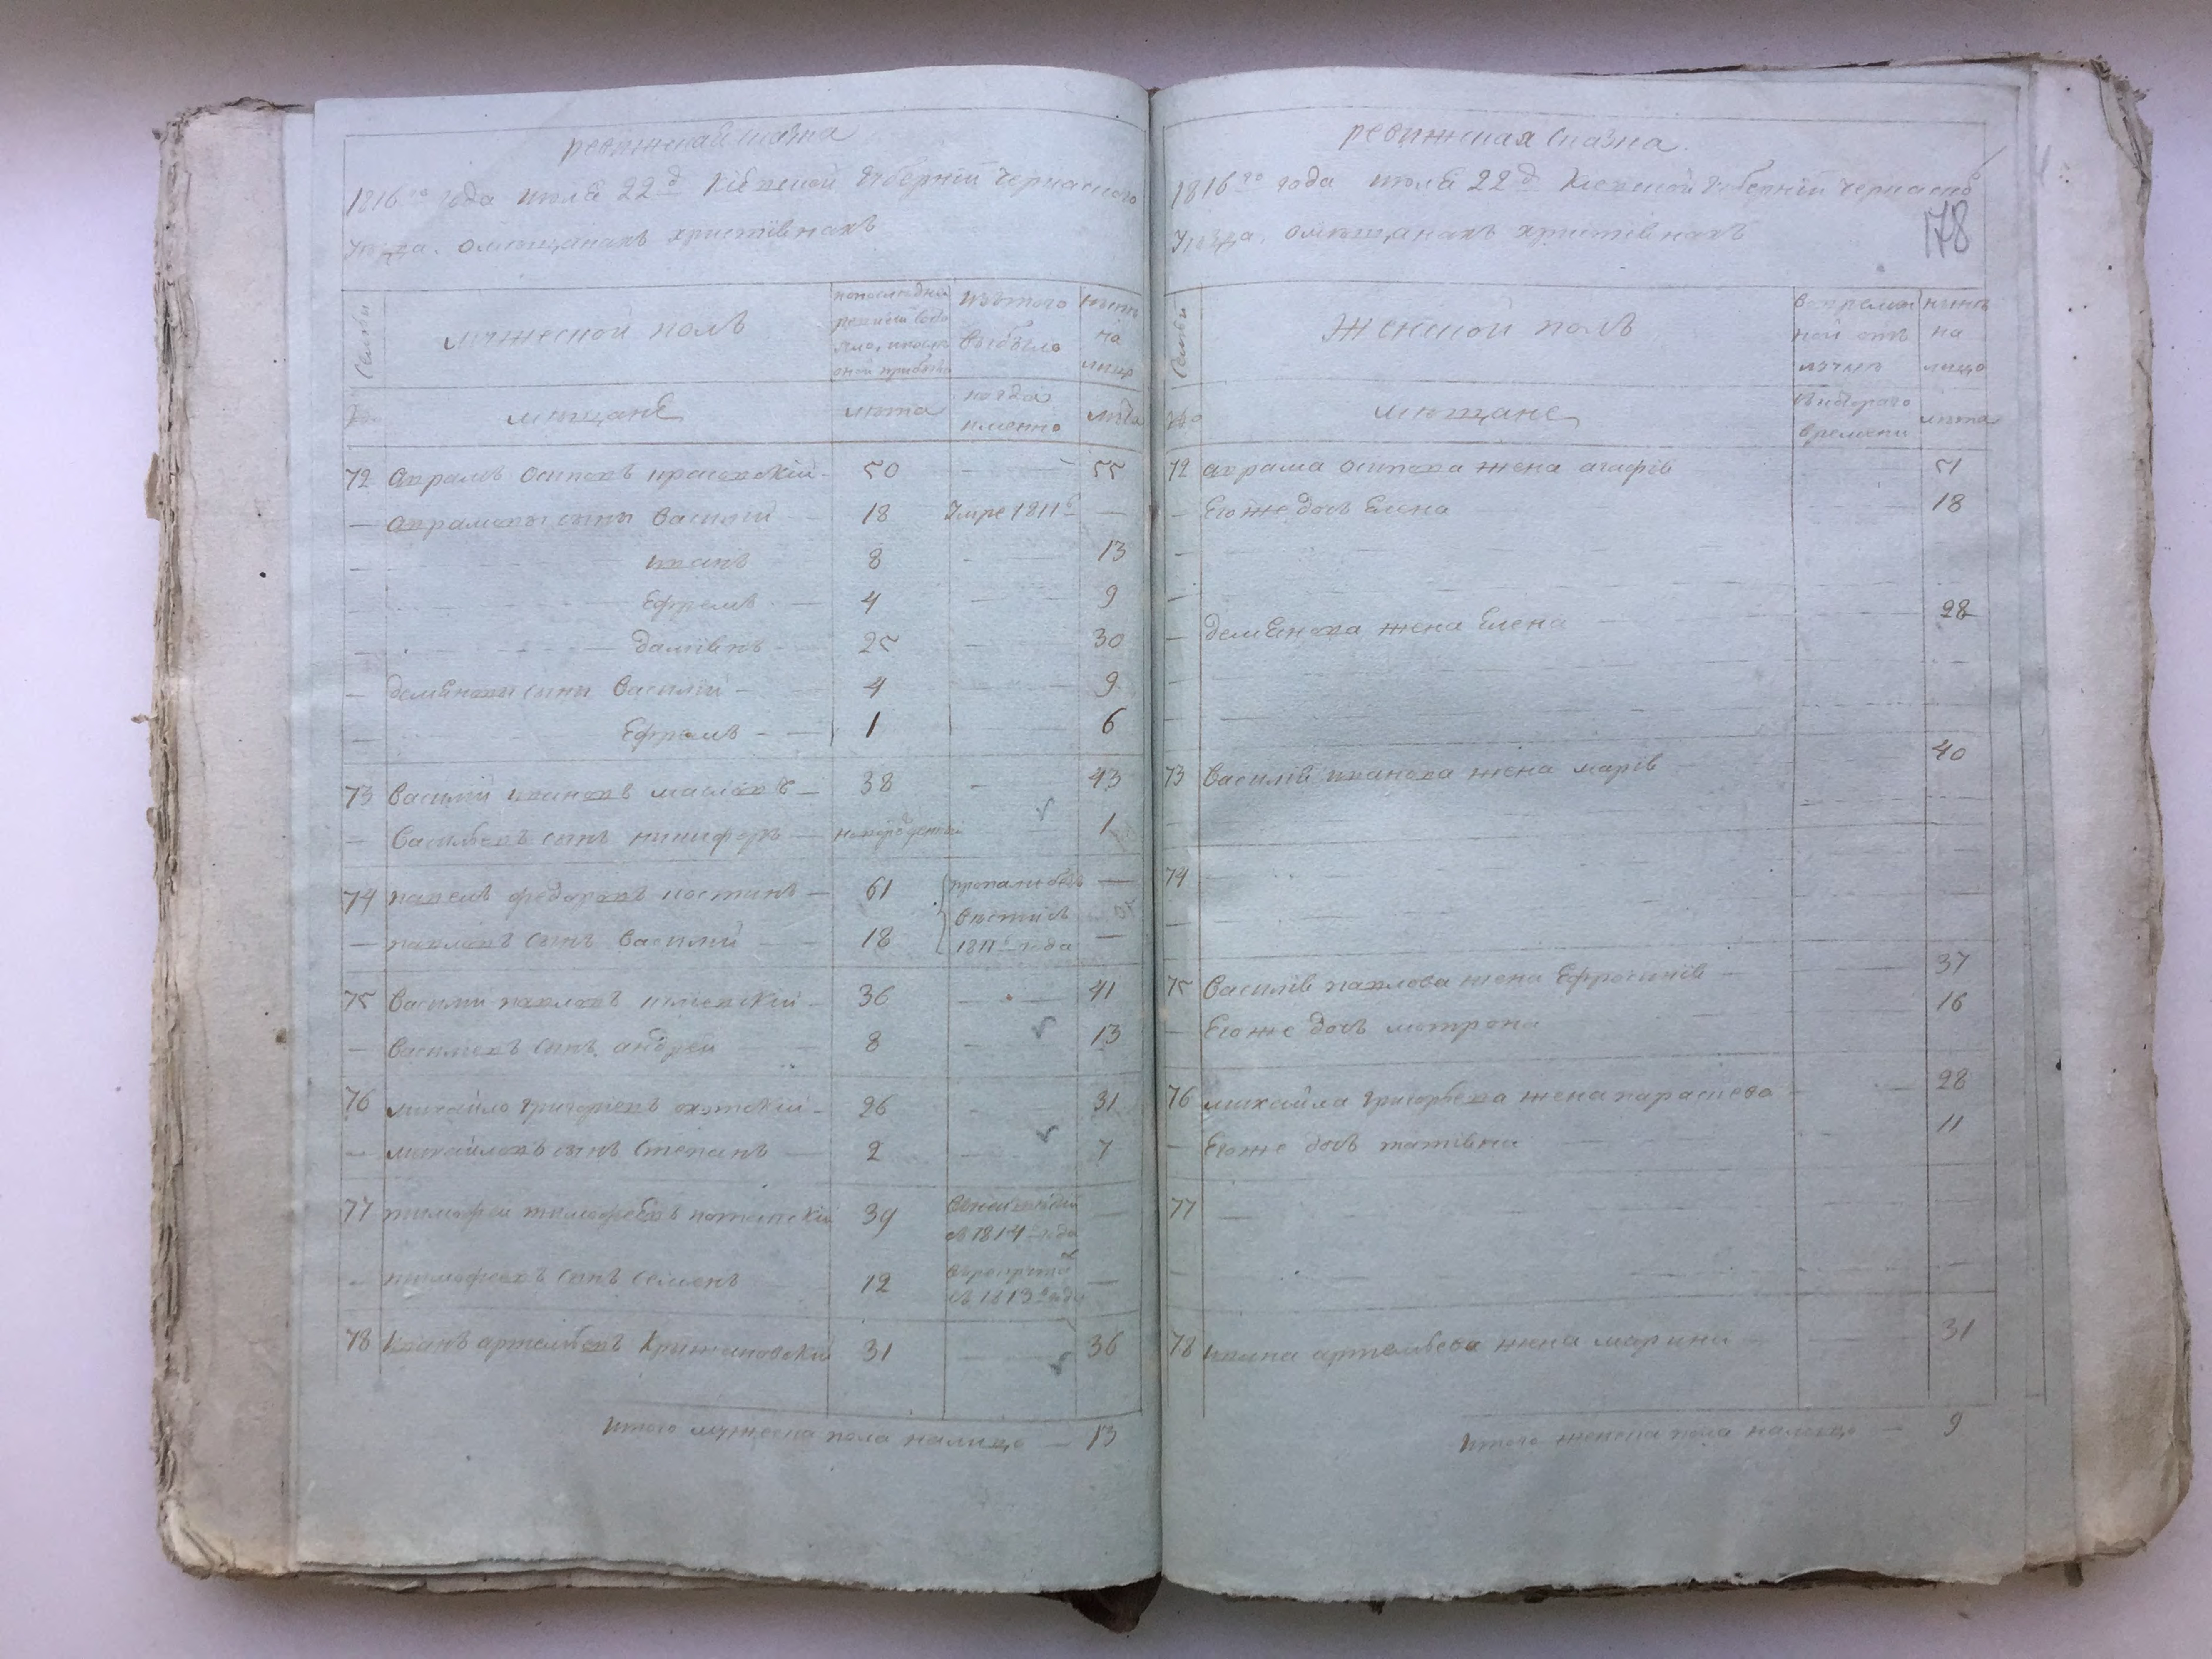 ревижская сказка
1816го года июля 22д Киевской губернии черкаского
Уезда. омещанахъ християнахъ
Семьи
мужеской полъ
попоследней ревизии состояло, и после оной прибыло
изътого выбыло
ныне на лицо
№
мещане
лета
когда именно
лета
72 Аврамъ Осиповъ красовский 50 — 55
— Аврамовы сыны Василий 18 Умре 1811г —
— иванъ 8 — 13
— Ефремъ 4 — 9
— дамиянъ 25 — 30
— демяновы сыны Василий 4 — 9
Ефремъ 1 6
73 Василий ивановъ масловъ 38 — 43
— Васильевъ сынъ никифоръ новорожденный 1
74 павелъ федоровъ костинъ 61 пропали безъ —
— павловъ сынъ Василий 18 вести съ 1811г года —
75 Василий павловъ 36 — 41
— Василиевъ сынъ андрей 8 — 13
76 михайло григориевъ охотский 26 — 31
— михайловъ сынъ Степанъ 2 — 7
77 тимофей тимофеевъ 39 съ 1814 года —
— тимофеевъ сынъ Семенъ 12 съ 1813 года —
78 Иванъ артемьевъ Крижановский 31 — 36
Итого мужеска пола налицо — 13
ревижская сказка.
1816го года июля 22д Киевской губернии черкаско
Уезда, омещанахъ християнахъ
178
Семьи
Женской полъ
вовременной отлучке
ныне на лицо
№
мещане
скоторого времени
лета
72 аврама осипова жена агафия 51
— Егоже дочь Елена 18
— демянова жена Елена 28
73 Василия иванова жена мария 40
74 —
75 Василия павлова жена Ефросиния 37
— Егоже дочь мотрона 16
76 михайла григорьева жена парасцева 28
— Егоже дочь татияна 11
77 —
78 ивана артемьева жена марина 31
Итого женска пола налицо — 9